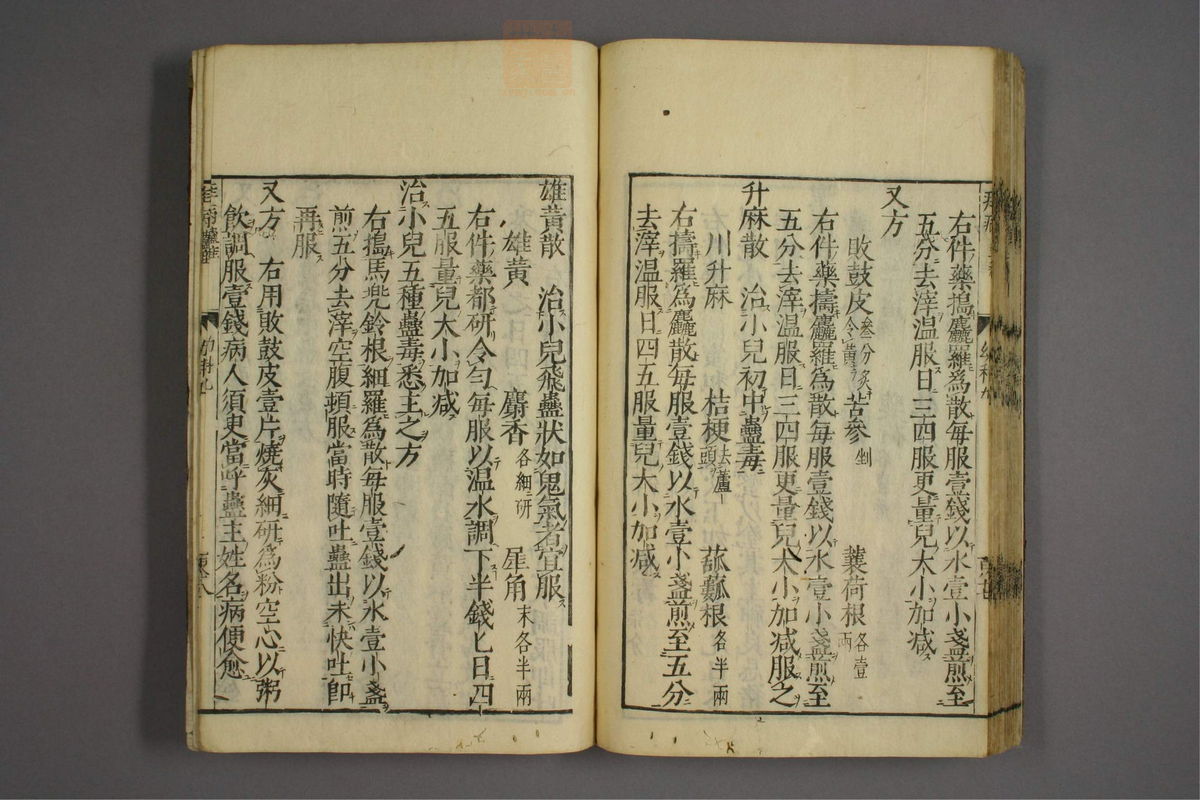 右件藥搗麤羅爲散每服壹錢以水壹小盞煎至
五分去滓温服日三四服更量兒大小加减
又方
敗鼓皮叁分炙令黄 苦參剉 蘘荷根各壹兩
右件藥擣麤羅爲散每服壹錢以水壹小盞煎至
五分去滓温服日三四服更量兒大小加减服之
升麻散 治小兒初中蠱毒
川升麻 桔梗去蘆頭 菰𤬏根各半兩
右擣羅爲麤散每服壹錢以水壹小盞煎至五分
去滓温服日四五服量兒大小加减
雄黄散 治小兒飛蠱狀如鬼氣者宜服
雄黄 麝香各細研 犀角末各半兩
右件藥都研令勻每服以温水調下半錢匕日四
五服量兒大小加减
治小兒五種蠱毒悉主之方
右搗馬兜鈴根細羅爲散每服壹錢以水壹小盞
煎五分去滓空腹頓服當時隨吐蠱出未快吐卽
再服
又方 右用敗鼓皮壹片燒灰細研爲粉空心以粥
飲調服壹錢病人須臾當呼蠱主姓名病便愈